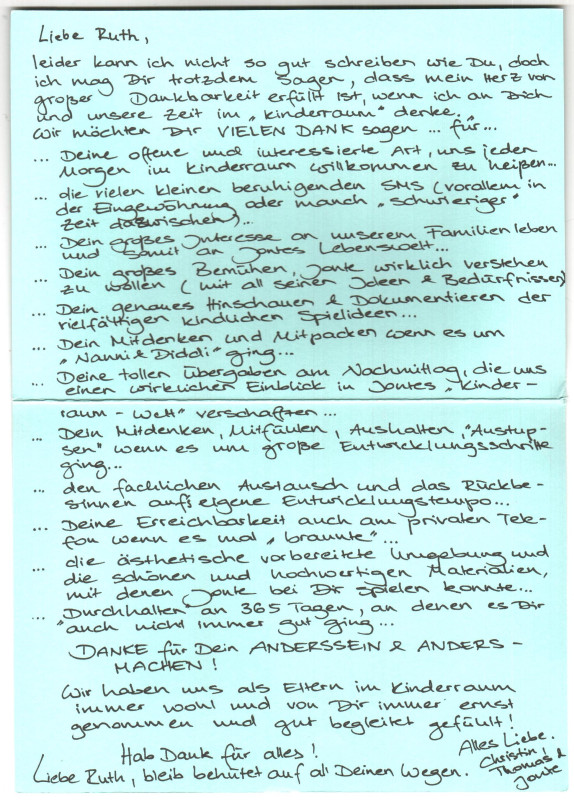 Liebe Ruth,
leider kann ich nicht so gut schreiben wie Du, doch
ich mag Dir trotzdem sagen, dass mein Herz von
großer Dankbarkeit erfüllt ist, wenn ich an Dich
und unsere Zeit im „Kinderraum" denke.
Wir möchten Dir VIELEN DANK sagen ... für ...
... Deine offene und interessierte Art, uns jeden
Morgen im Kinderraum willkommen zu heißen...
... die vielen kleinen beruhigenden SMS (vorallem in
der Eingewöhnung oder manch „schwieriger"
Zeit dazwischen)...
... Dein großes Interesse an unserem Familienleben
und somit an Jontes Lebenswelt...
... Dein großes Bemühen, Jonte wirklich verstehen
zu wollen (mit all seinen Ideen & Bedürfnissen)
... Dein genaues Hinschauen & Dokumentieren der
vielfältigen kindlichen Spielideen...
... Dein Mitdenken und Mitpacken wenn es um
„Nanni & Diddi" ging...
... Deine tollen Übergaben am Nachmittag, die uns
einen wirklichen Einblick in Jontes „Kinder-
raum-Welt" verschafften...
... Dein Mitdenken, Mitfühlen, Aushalten, "Anstup-
sen" wenn es um große Entwicklungsschritte
ging...
... den fachlichen Austausch und das Rückbe-
sinnen aufs eigene Entwicklungstempo...
... Deine Erreichbarkeit auch am privaten Tele-
fon wenn es mal „brannte"...
... die ästhetische vorbereitete Umgebung und
die schönen und hochwertigen Materialien,
mit denen Jonte bei Dir spielen konnte...
... „Durchhalten" an 365 Tagen, an denen es Dir
auch nicht immer gut ging...
DANKE für Dein ANDERSSEIN & ANDERS-
MACHEN!
Wir haben uns als Eltern im Kinderraum
immer wohl und von Dir immer ernst
genommen und gut begleitet gefühlt!
Hab Dank für alles!
Liebe Ruth, bleib behütet auf all Deinen Wegen.
Alles Liebe.
Christin,
Thomas &
Jonte